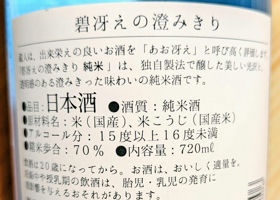 碧冴えの澄みきり
蔵人は、出来栄えの良いお酒を「あお冴え」と呼び高く評価します
「碧冴えの澄みきり 純米」は、独自製法で醸した美しい光沢と
透明感のある澄みきった味わいの純米酒です。
●品目：日本酒 ●酒質：純米酒
●原材料名：米(国産)、米こうじ(国産米)
●アルコール分：15度以上16度未満
●精米歩合：70% ●内容量：720ml
飲酒は20歳になってから。お酒は、おいしく適量を。
妊娠中や授乳期の飲酒は、胎児・乳児の発育に
悪影響を与えるおそれがあります。